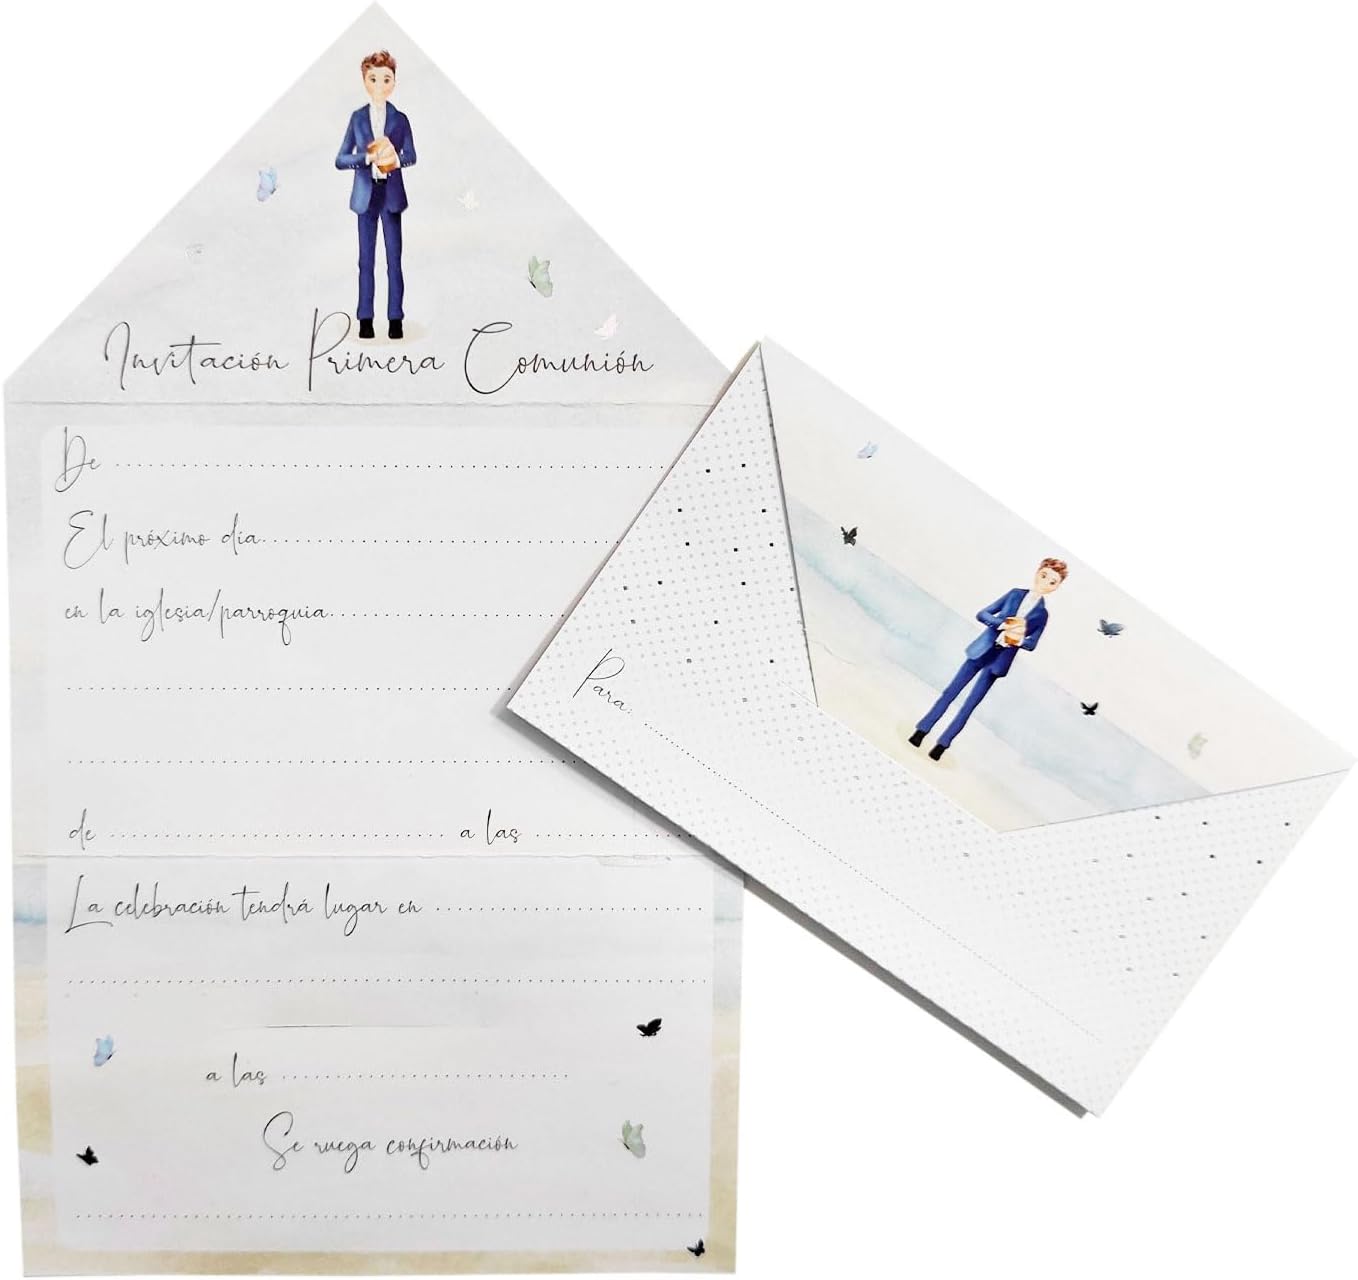 Invitación Primera Comunión
De ..........................................
El próximo día..............................
en la iglesia/parroquia.....................
de .................................. a las ................
La celebración tendrá lugar en ...........................
a las .............................
Se ruega confirmación
Para: ..........................................